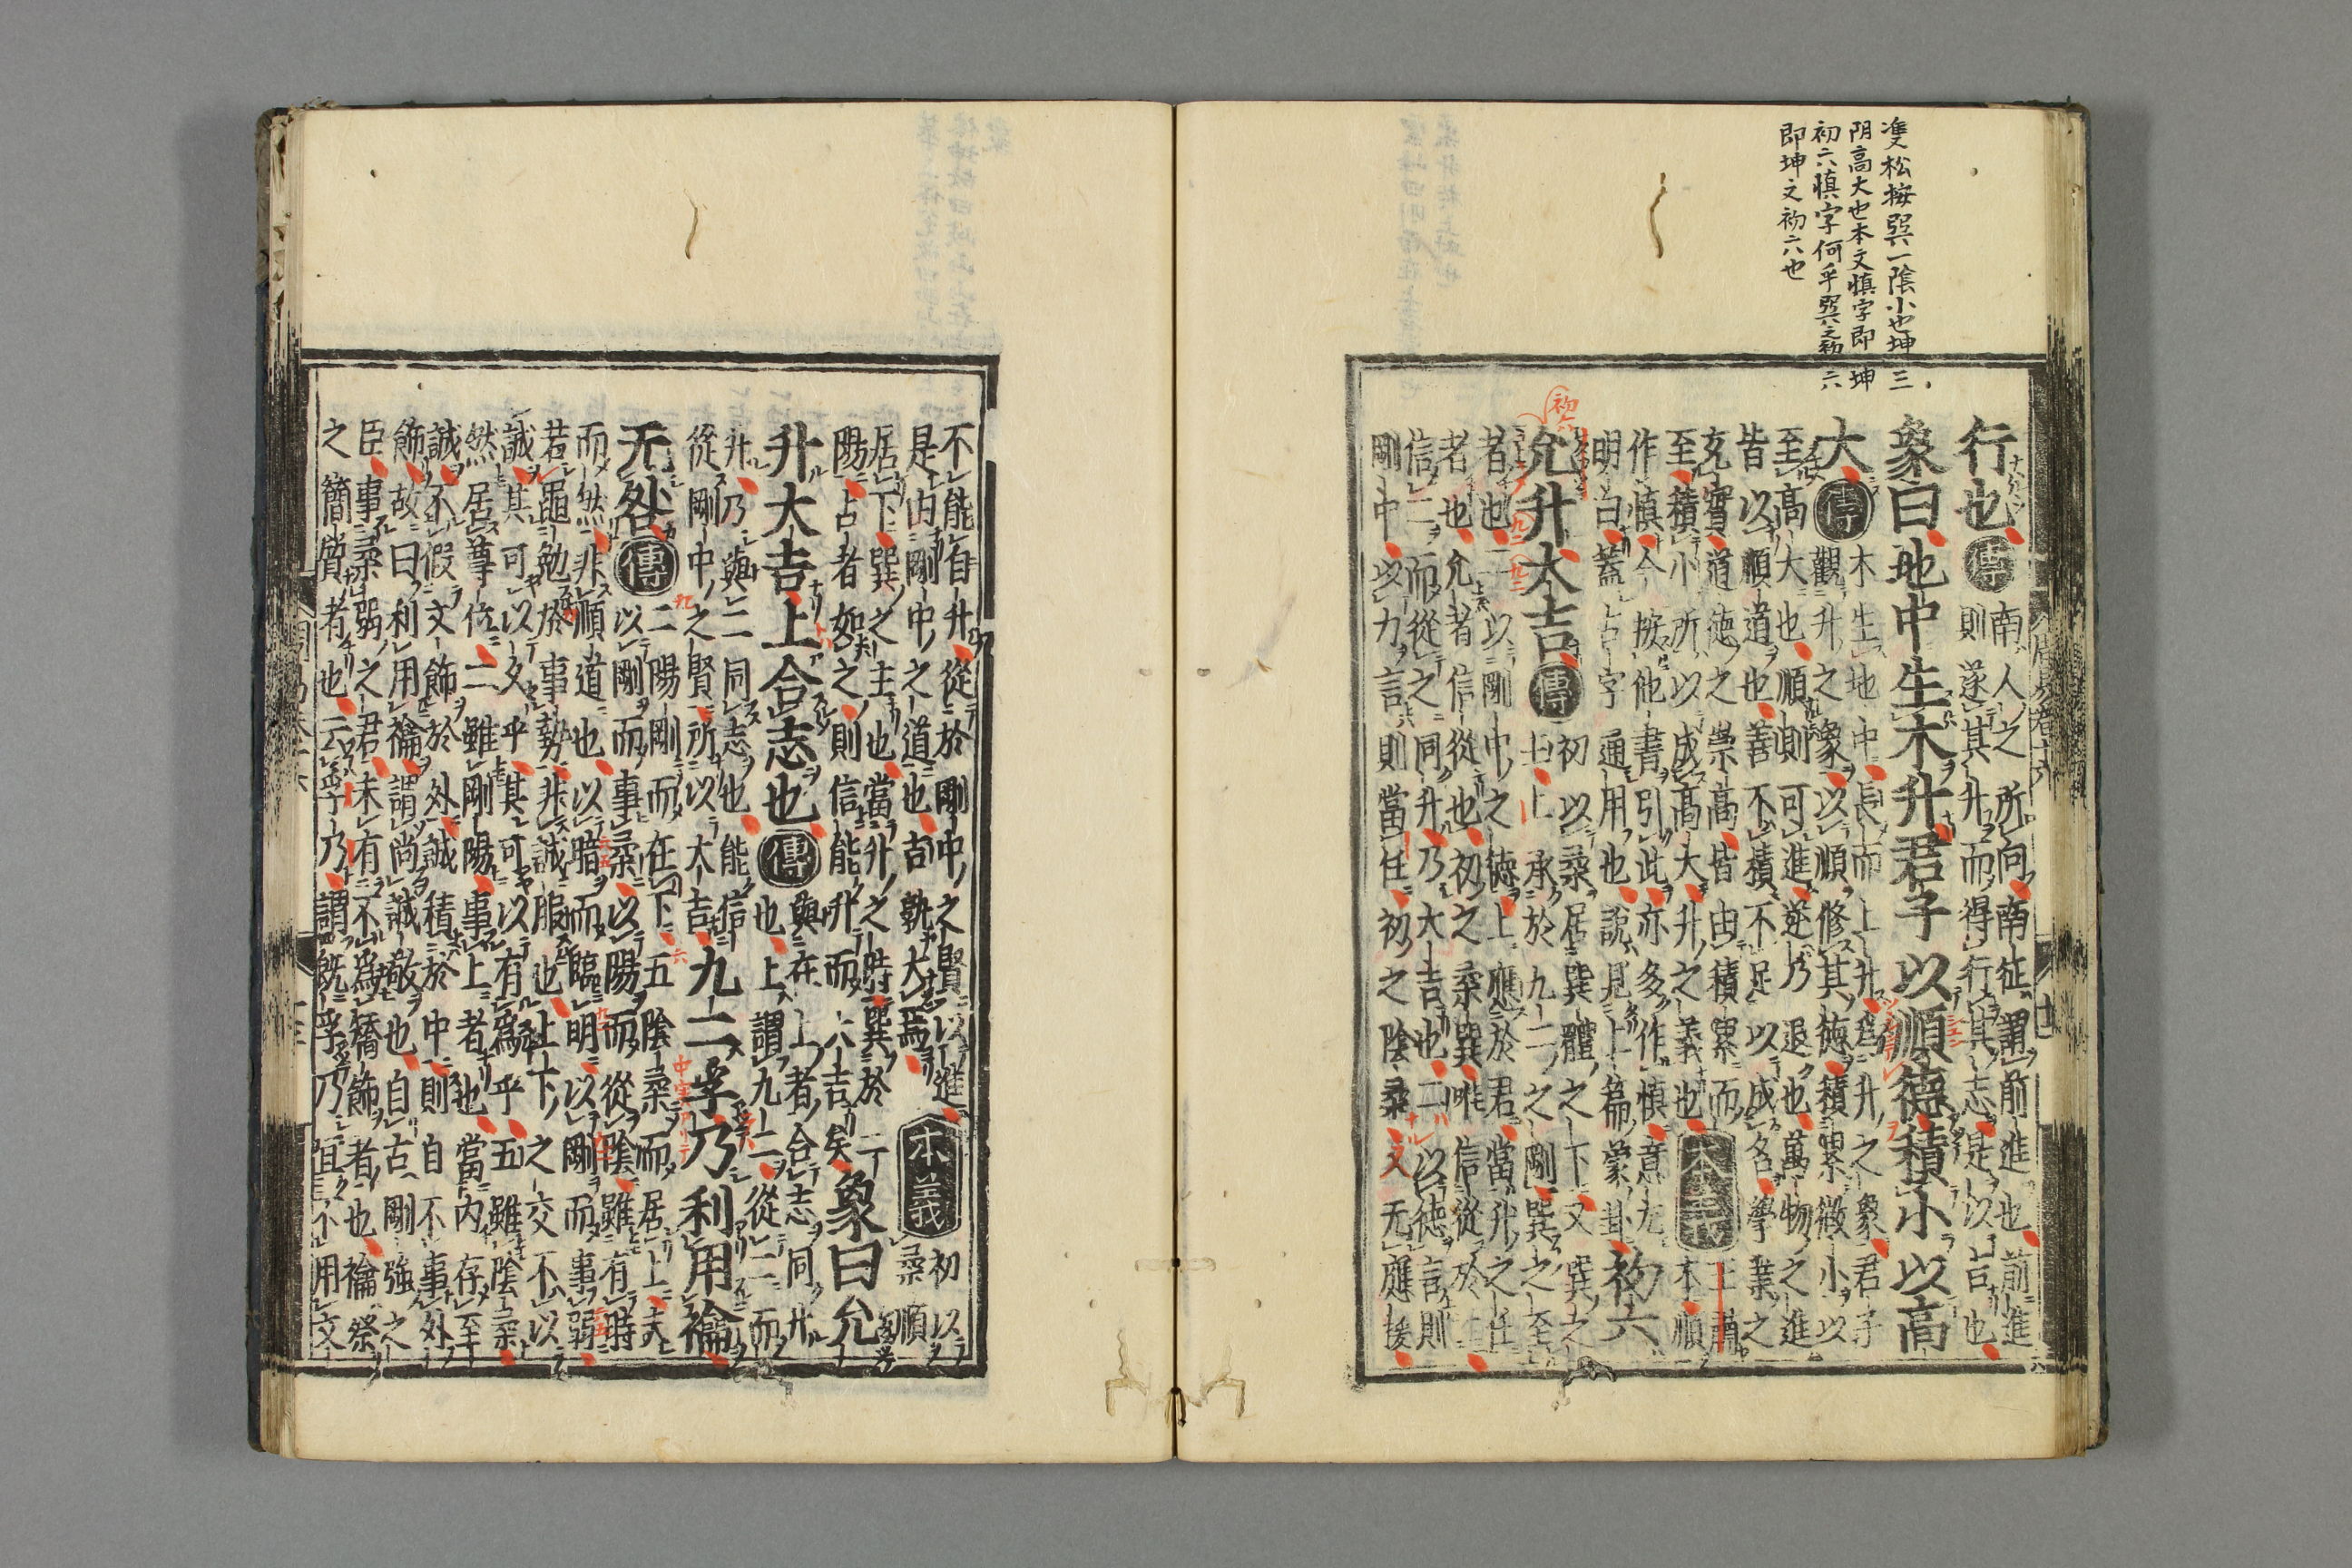 隻松按巽一陰小也坤三
阴高大也本文慎字即坤
初六慎字何乎巽之初六
即坤文初六也
行也傳南人之所向南征謂前進也前進
則遂其升而得行其志是以吉也
象曰地中生木升君子以順德積小以高
大傳木生地中長而上升爲升之象君子
觀升之象以順修其德積累微小以
至高大也順則可進逆乃退也萬物之進
皆以順道也善不積不足以成名學業之
充實道德之崇高皆由積累而
至積小所以成高大升之義也本義王肅
本順
作慎今按他書引此亦多作慎意尤
明白蓋古字通用也說見上篇蒙卦初六
允升大吉傳初以柔居巽體之下又巽之
主上承於九二之剛巽之至
者也二以剛中之德上應於君當升之任
者也允者信從也初之柔巽唯信從於二
信二而從之同升乃大吉也二以德言則
剛中以力言則當任初之陰柔又无應援
不能自升從於剛中之賢以進
是由剛中之道也吉孰大焉本義初以
柔順
居下巽之主也當升之時巽於二
陽占者如之則信能升而大吉矣象曰允
升大吉上合志也傳與在上者合志同升
也上謂九二從二而
升乃與二同志也能信
從剛中之賢所以大吉九二孚乃利用禴
无咎傳二陽剛而在下五陰柔而居上夫
以剛而事柔以陽而從陰雖有時
而然非順道也以暗而臨明以剛而事弱
若黽勉於事勢非誠服也上下之交不以
誠其可以久乎其可以有爲乎五雖陰柔
然居尊位二雖剛陽事上者也當內存至
誠不假文飾於外誠積於中則自不事外
飾故曰利用禴謂尚誠敬也自古剛強之
臣事柔弱之君未有不爲矯飾者也禴祭
之簡質者也云孚乃謂既孚乃宜不用文